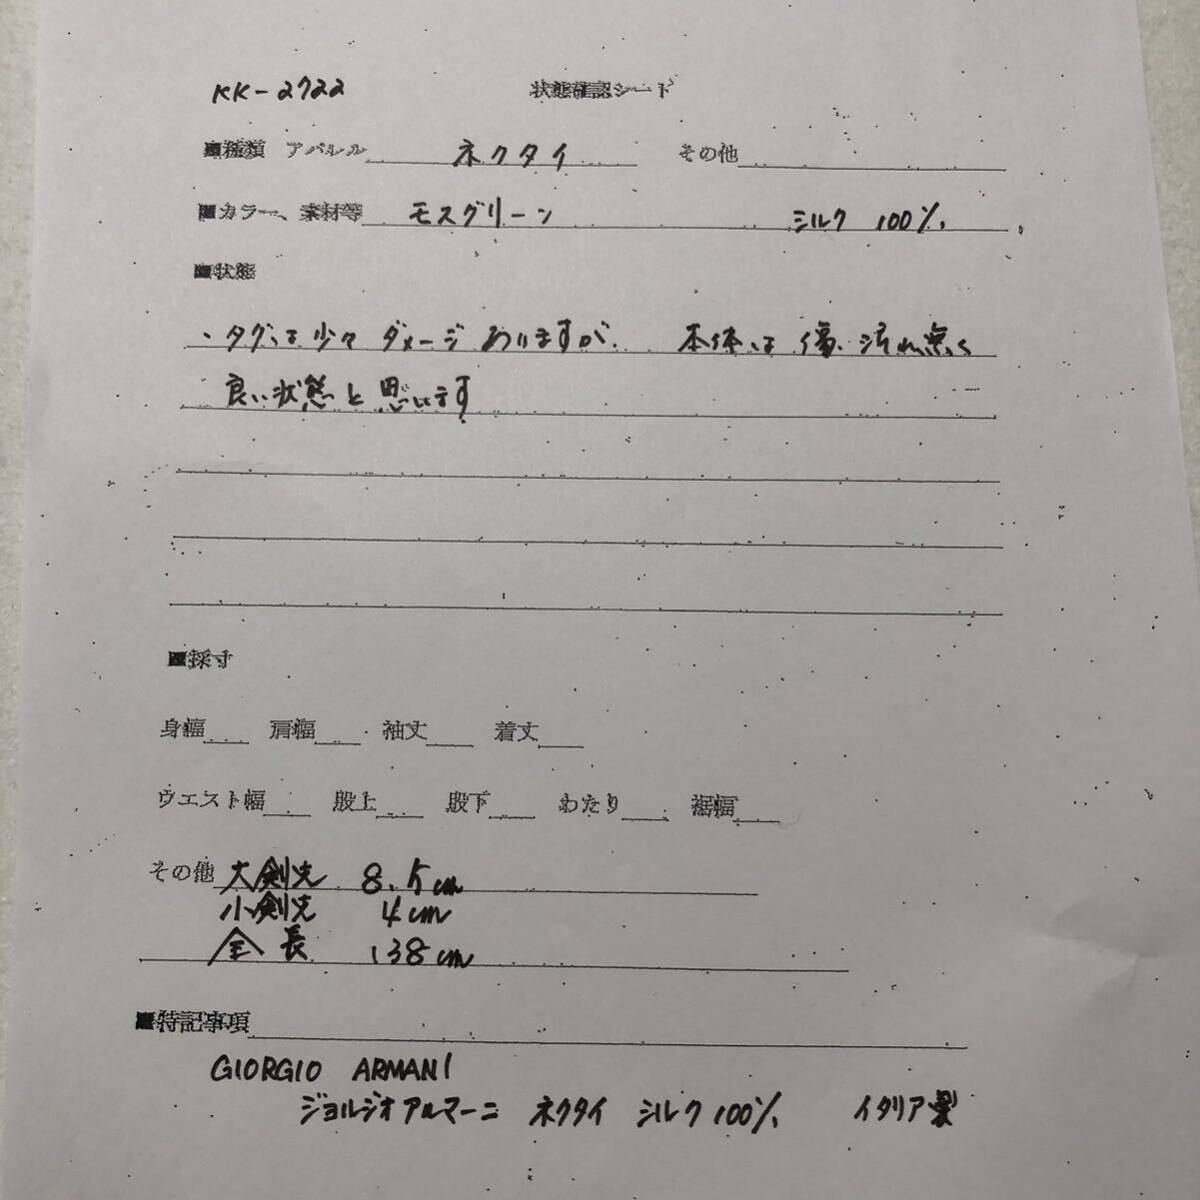 KK-2722 状態確認シート
■種類 アパレル ネクタイ その他
■カラー、素材等 モスグリーン シルク 100%
■状態
・タグは少々ダメージありますが、本体は傷、汚れ無く
良い状態と思います
■採寸
身幅 肩幅 袖丈 着丈
ウエスト幅 股上 股下 わたり 裾幅
その他 大剣先 8.5cm
小剣先 4cm
全長 138cm
■特記事項
GIORGIO ARMANI
ジョルジオアルマーニ ネクタイ シルク100% イタリア製